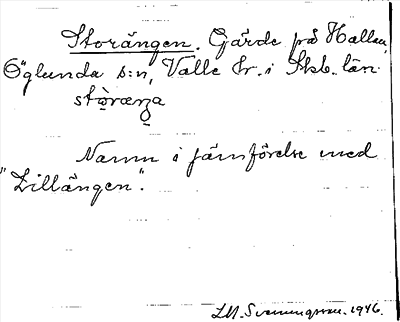 Storängen. Gärde på Hallan,
Öglunda s:n, Valle hr. i Skb. län.
Namn i jämförelse med
"Lillängen".
LM. Svenungsson. 1946.